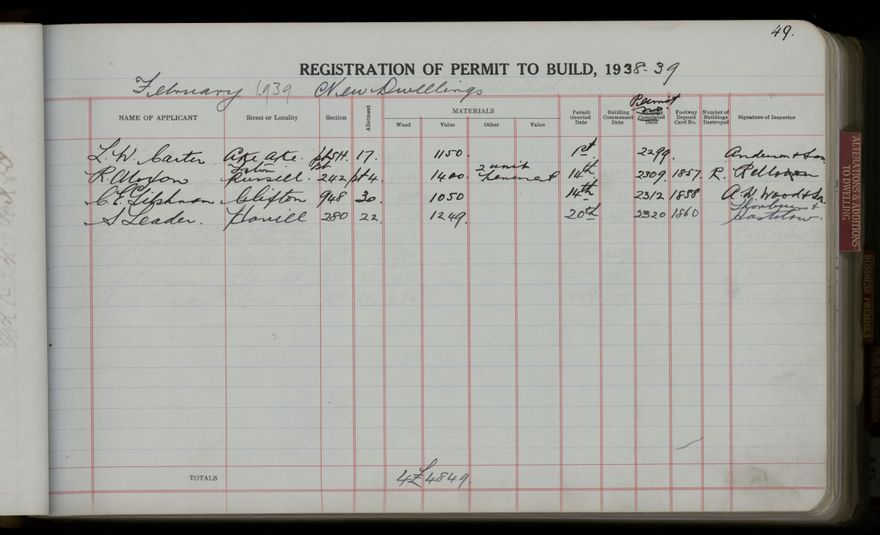 49.
REGISTRATION OF PERMIT TO BUILD, 1938-39
February 1939 New Dwellings
NAME OF APPLICANT Street or Locality Section Allotment MATERIALS Wood Value Other Value Permit Granted Date Building Commenced Date Permit No. Completed Date Footway Deposit Card No. Number of Buildings Destroyed Signature of Inspector
L. W. Carter Ake Ake 17. 1150. 1st 2299. Anderson & Son
R. Morton Russell 242 pt 4. 1400. 2 unit tenement 14th 2309. 1857. R.
Clifton 948 30. 1050 14th 2312 1858 A. W. Wood & Son
S Leader. Havill 280 22. 1249. 20th 2320 1860 &
TOTALS 4 £4849.
ALTERATIONS & ADDITIONS TO DWELLING
BUSINESS PREMISES